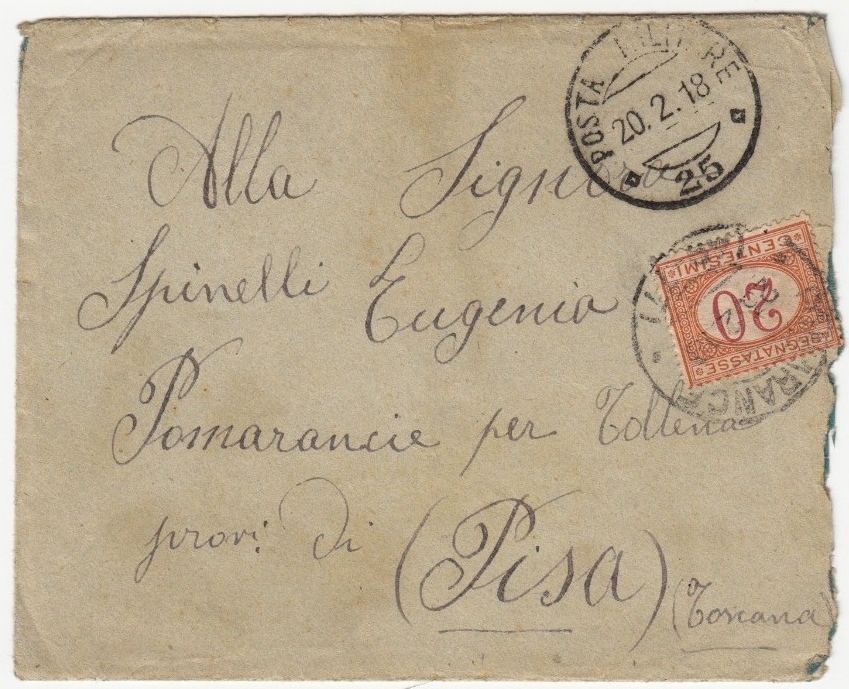 POSTA MILITARE
20.2.18
25
Alla Signora
Spinelli Eugenia
CENTESIMI
20
SEGNATASSE
Pomarancie per Tollena
provi. di (Pisa)
(Toscana)